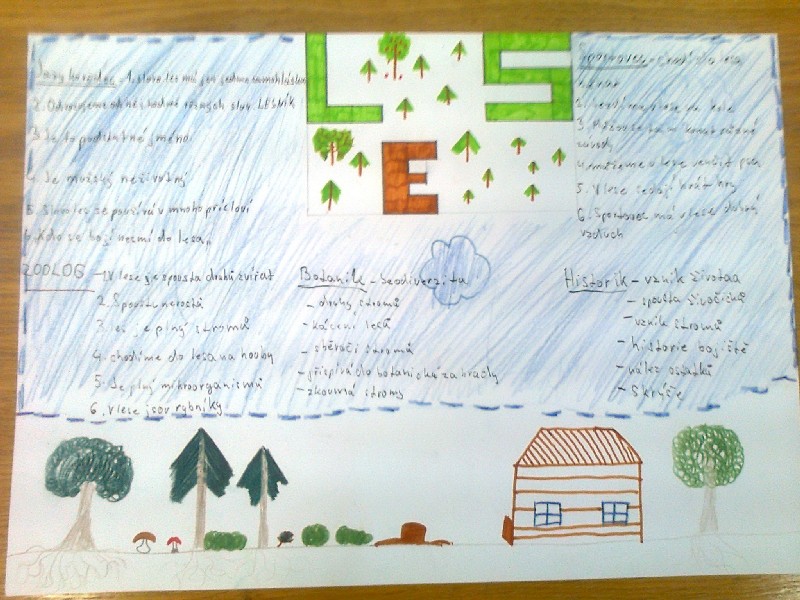 LES
Jazykovědec - 1. slovo les má jen jednu samohlásku
2. Odvozujeme od něj hodně různých slov. LESNÍK
3. Je to podstatné jméno
4. Je mužský neživotný
5. Slovo les se používá v mnoho přísloví
6. Kdo se bojí nesmí do lesa„
Sportovec - do lesa
2. se v lese
3. konat různé
závody
4. můžeme v lese venčit psa
5. V lese se dají hrát hry
6. Sportovec má v lese dobrý
vzduch
ZOOLOG - 1. V lese je spousta druhů zvířat
2. Spousty nerostů
3. les je plný stromů
4. chodíme do lesa na houby
5. Je plný mikroorganismů
6. V lese jsou rybníky
Botanik - beodiverzitu
- druhy stromů
- kácení lesů
- stromů
- přispívá do botanické zahrady
- zkoumá stromy
Historik - vznik životaa
- spousta živočichů
- vznik stromů
- historie bojiště
- nález ostatků
- Skrýše